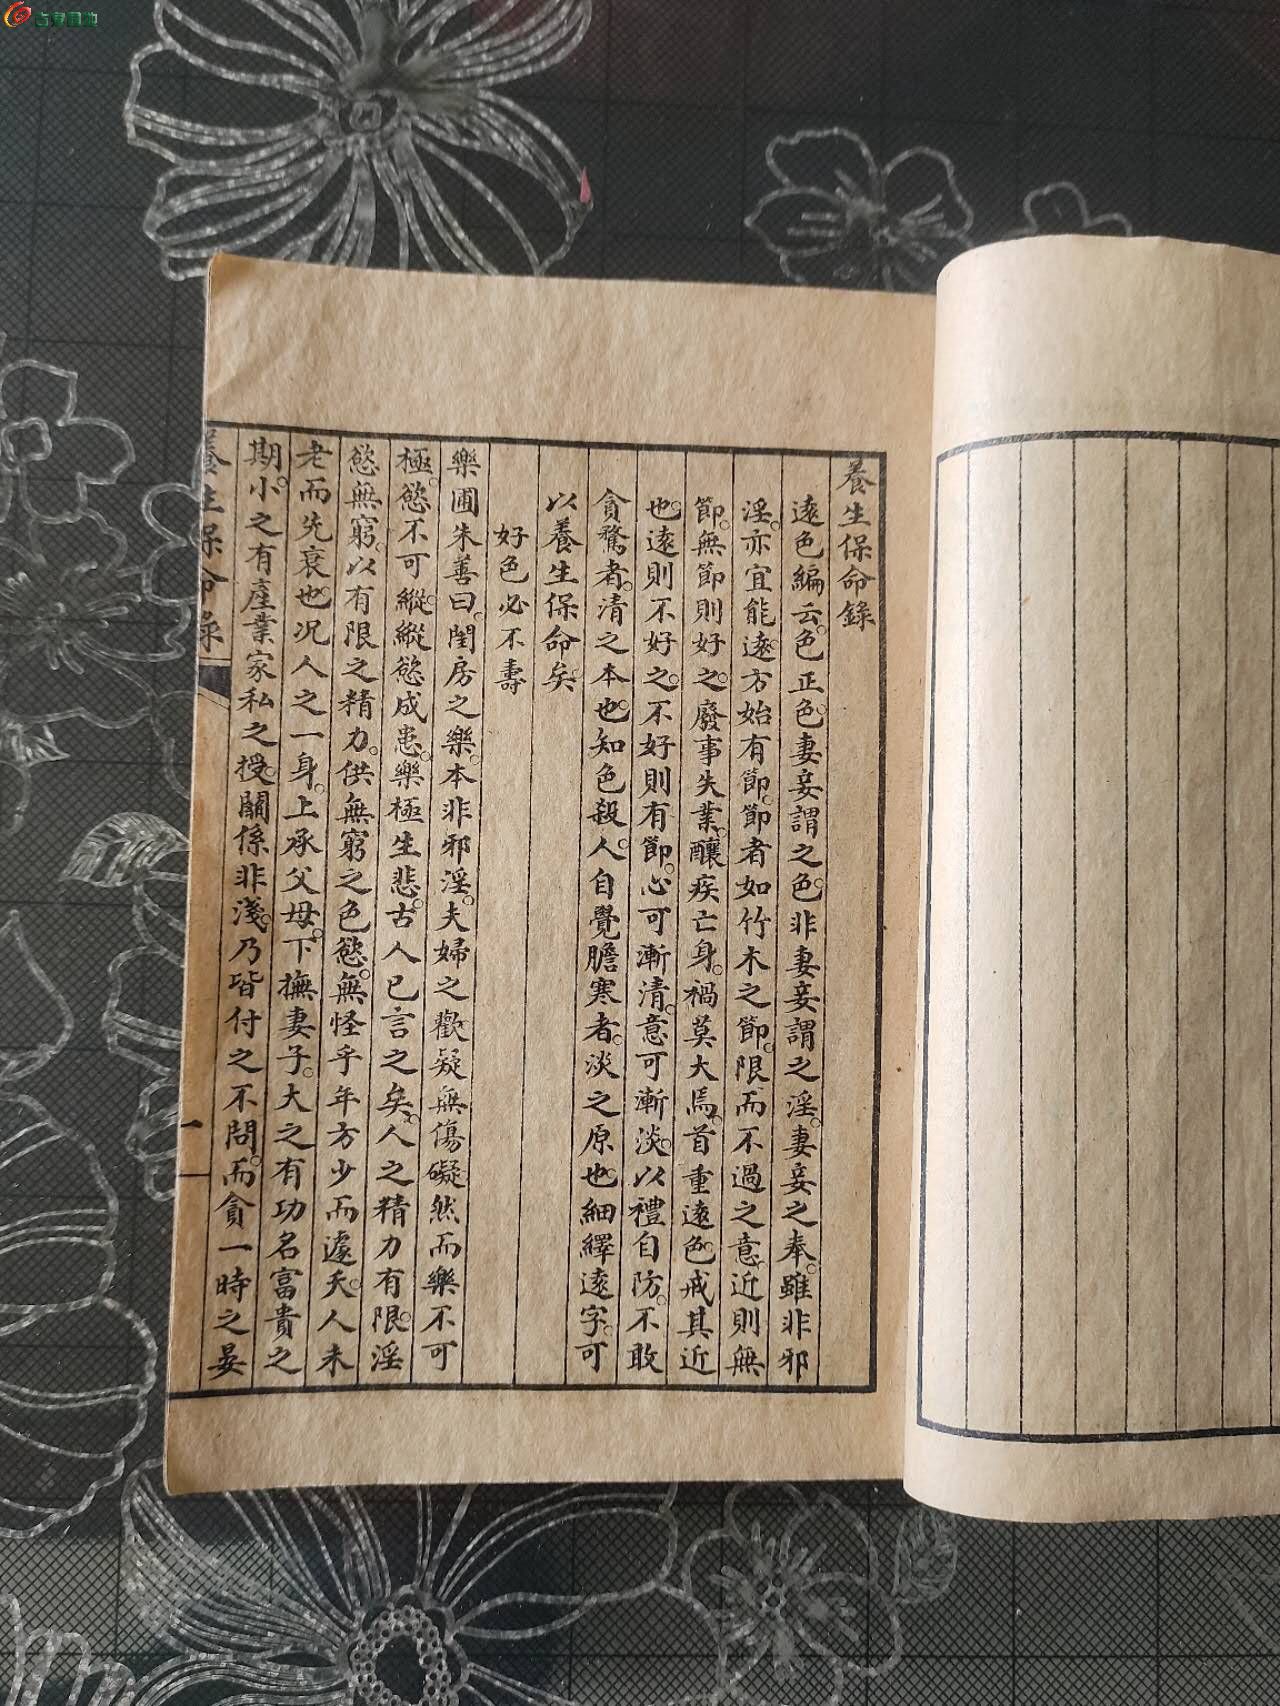 養生保命錄
遠色編云。色正色。妻妾謂之色。非妻妾謂之淫。妻妾之奉。雖非邪
淫。亦宜能遠。方始有節。節者如竹木之節。限而不過之意。近則無
節。無節則好之。廢事失業。釀疾亡身。禍莫大焉。首重遠色。戒其近
也。遠則不好之。不好則有節。心可漸清。意可漸淡。以禮自防。不敢
貪騖者。清之本也。知色殺人。自覺膽寒者。淡之原也。細繹遠字。可
以養生保命矣。
好色必不壽
樂圃朱善曰。閨房之樂。本非邪淫。夫婦之歡。疑無傷礙。然而樂不可
極。慾不可縱。縱慾成患。樂極生悲。古人已言之矣。人之精力有限。淫
慾無窮。以有限之精力。供無窮之色慾。無怪乎年方少而遽夭。人未
老而先衰也。況人之一身。上承父母。下撫妻子。大之有功名富貴之
期。小之有產業家私之授。關係非淺。乃皆付之不問。而貪一時之晏
養生保命錄
一